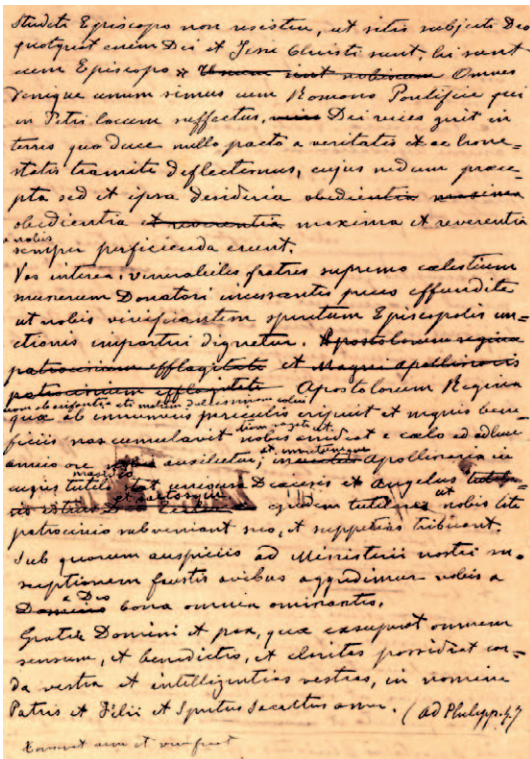 studete Episcopo non resistere, ut sitis subjecti Deo
quotquot enim Dei et Jesu Christi sunt, hi sunt
cum Episcopo Unum sint nobiscum Omnes
denique unum simus cum Romano Pontifice qui
in Petri locum suffectus, Dei vices gerit in
terris quo duce nullo pacto a veritatis et ac hone-
statis tramite deflectemus, cujus nedum præce-
pta sed et ipsa desideria obedientia maxima
obedientia et reverentia maxima et reverentia
a nobis
semper perficienda erunt.
Vos interea, venerabiles fratres supremo cœlestium
munerum Donatori incessantis preces effundite
ut nobis vivificantem spiritum Episcopalis un-
ctionis impertiri dignetur. Apostolorum regina
patrocinium efflagitate et Magni Apollinaris
patrocinium efflagitate Apostolorum Regina
quæ ab innumeris periculis eripuit et magnis bene-
ficiis nos cumulavit nobis arrideat e cœlo ad adhuc
auxilietur; Apollinaris in
magnifico
cujus tutela stat universa Diœcesis et Angelus
et ejusdem tutelares ut nobis
patrocinio subveniant suo, et suppetias tribuant.
Sub quorum auspiciis ad Ministerii nostri su-
sceptionem faustis avibus aggredimur vobis a
a Deo
Domino bona omnia ominantes.
Gratia Domini et pax, quæ exsuperat omnem
sensum, et benedictio, et claritas possideat cor-
da vestra et intelligentias vestras, in nomine
Patris et Filii et Spiritus Sanctus amen. (ad Philipp. 4.7